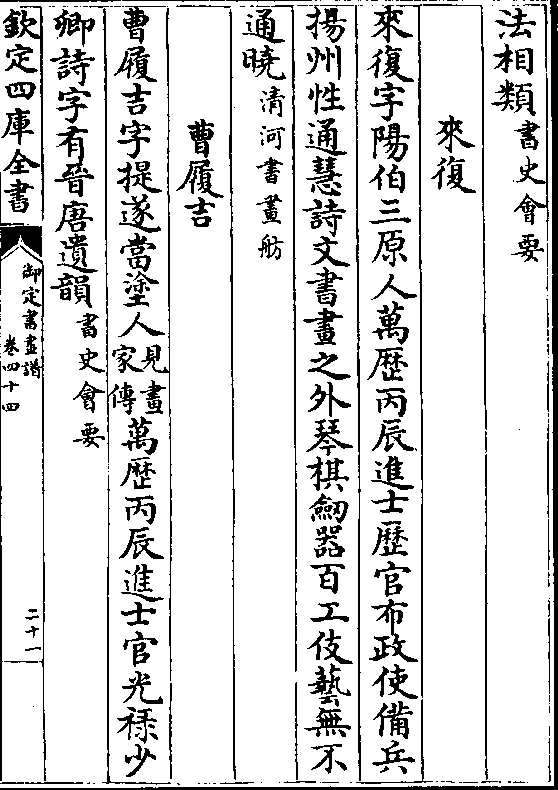 法相類書史會要
來復
來復字陽伯三原人萬歴丙辰進士歴官布政使備兵
揚州性通慧詩文書畫之外琴棋劒器百工伎藝無不
通曉清河書畫舫
曹履吉
曹履吉字提遂當塗人見畫家傳萬歴丙辰進士官光禄少
卿詩字有晉唐遺韻書史會要
欽定四庫全書
御定書畫譜
卷四十四
二十一